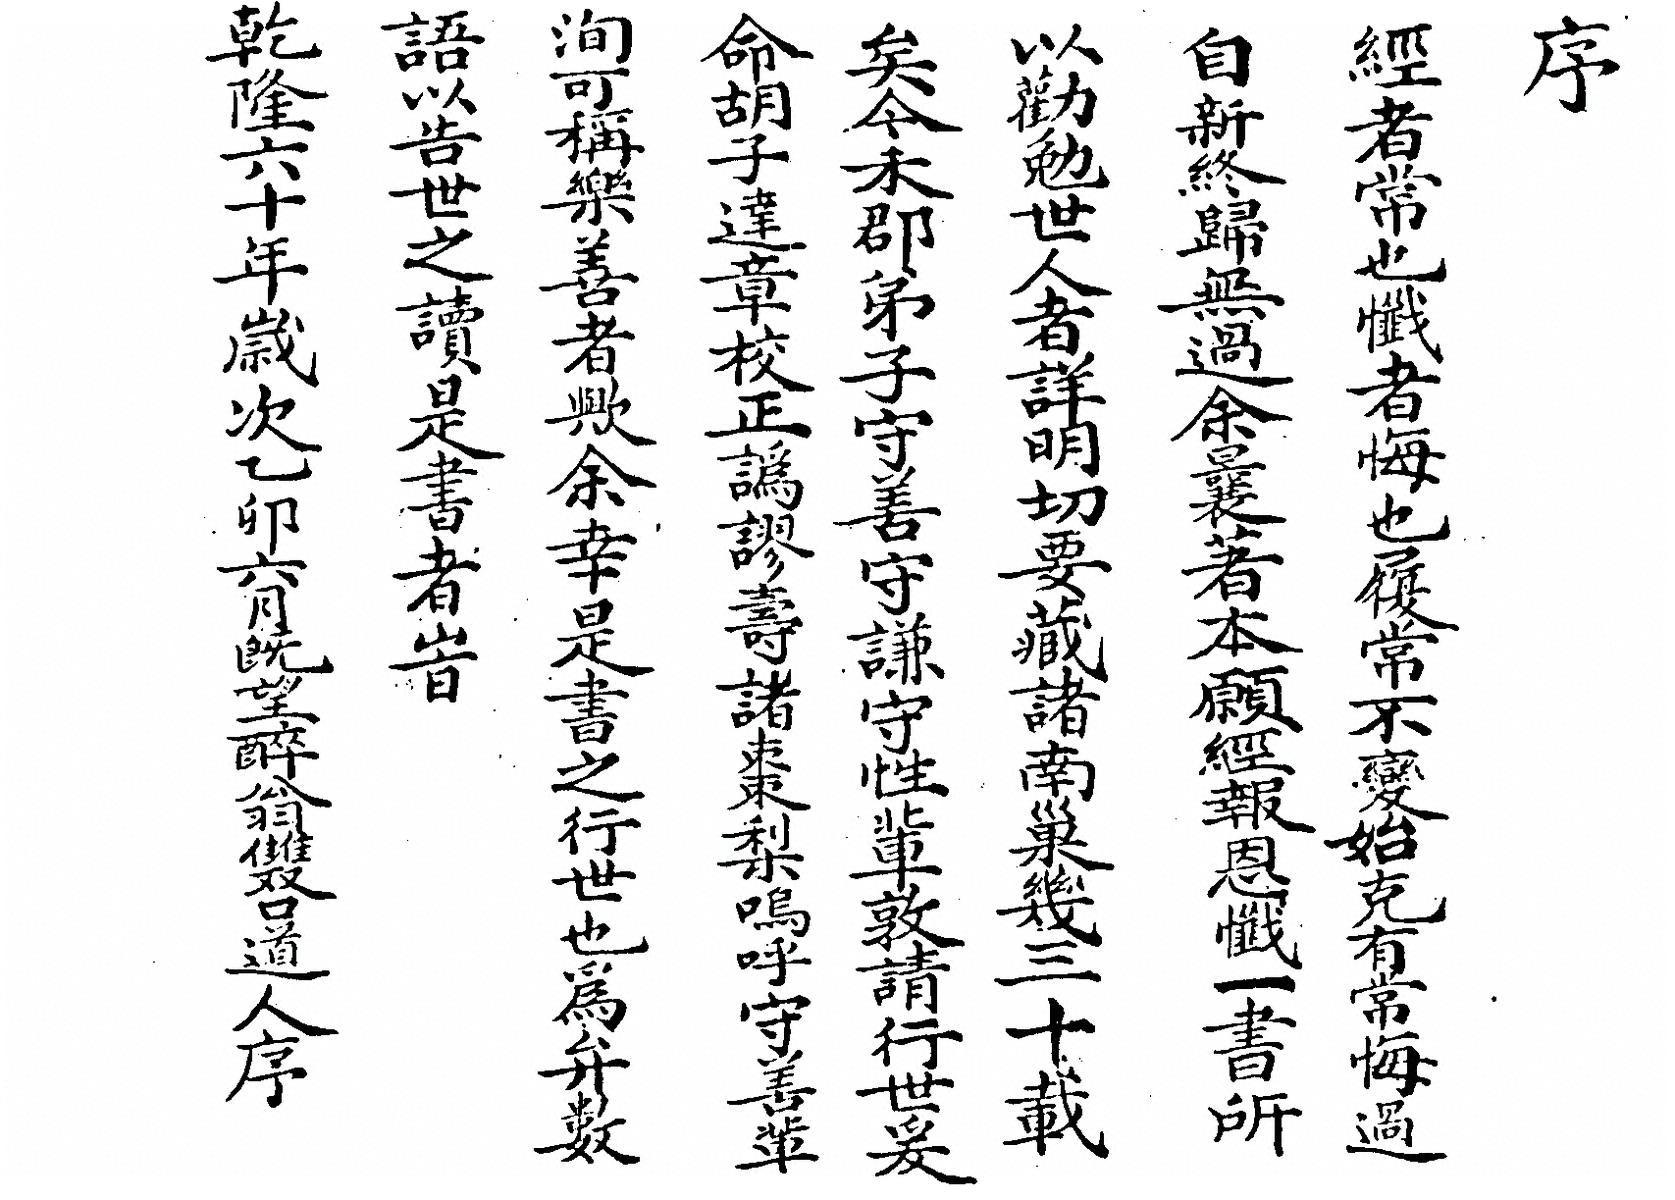 序
經者常也懺者悔也履常不變始克有常悔過
自新終歸無過余曩著本願經報恩懺一書所
以勸勉世人者詳明切要藏諸南巢幾三十載
矣今禾郡弟子守善守謙守性輩敦請行世爰
命胡子達章校正譌謬壽諸棗梨嗚呼守善輩
洵可稱樂善者歟余幸是書之行世也爲弁數
語以告世之讀是書者岢
乾隆六十年歲次乙卯六月既望醉翁雙口道人序